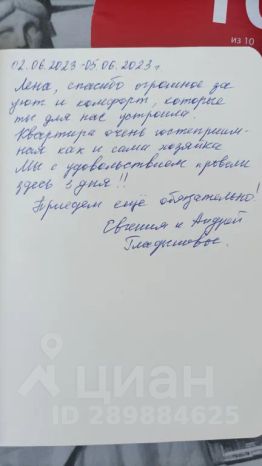 10
из 10
02.06.2023-05.06.2023г
Лена, спасибо огромное за
уют и комфорт, которые
ты для нас устроила.
Квартира очень гостеприим-
ная как и сами хозяйка
Мы с удовольствием провели
здесь 3 дня!!
Приедем ещё обязательно!
Евгения и Андрей
циан
ID 289884625